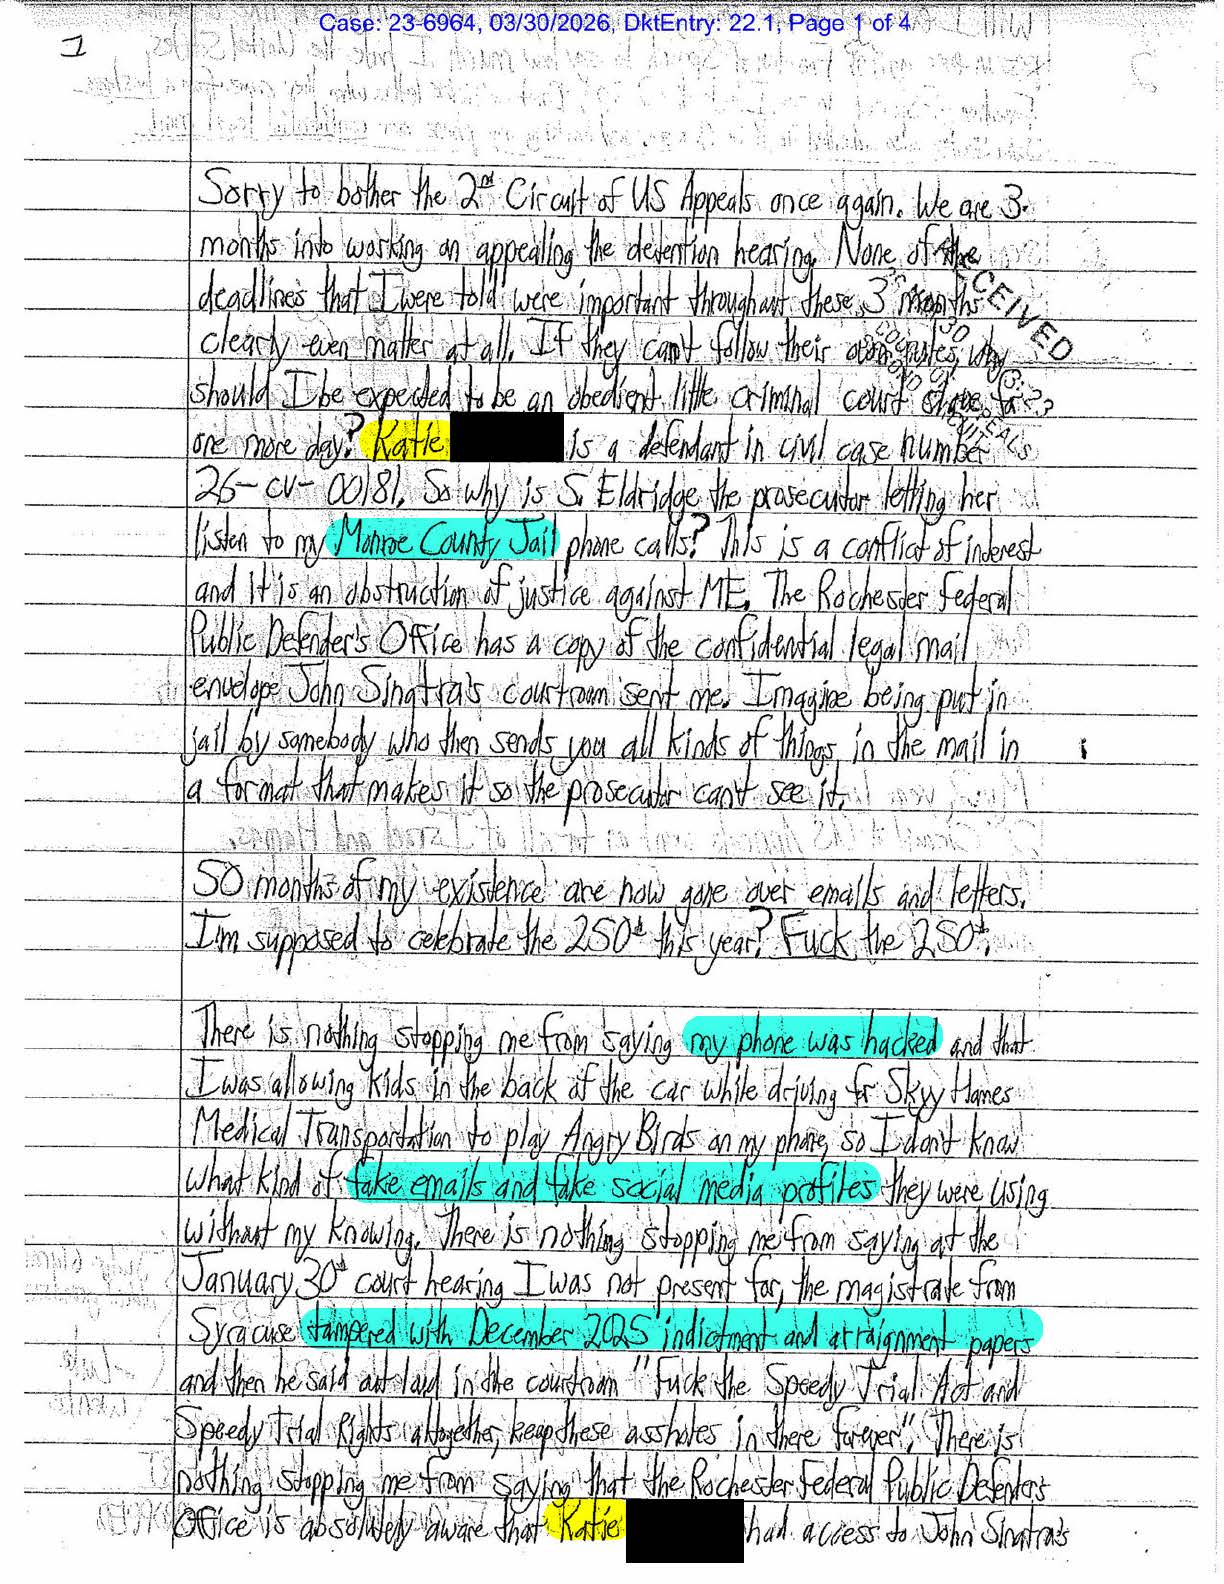 Case: 23-6964, 03/30/2026, DktEntry: 22.1, Page 1 of 4
1
Sorry to bother the 2nd Circuit of US Appeals once again. We are 3
months into working on appealing the detention hearing. None of the
deadlines that I were told were important throughout these 3 months
clearly even matter at all. If they can't follow their own rules, why
should I be expected to be an obedient little criminal court slave for
one more day? Katie is a defendant in civil case number
26-cv-00181. So why is S. Eldridge the prosecutor letting her
listen to my Monroe County Jail phone calls? This is a conflict of interest
and it is an obstruction of justice against ME. The Rochester Federal
Public Defender's Office has a copy of the confidential legal mail
envelope John Sinatra's courtroom sent me. Imagine being put in
jail by somebody who then sends you all kinds of things in the mail in
a format that makes it so the prosecutor can't see it.
50 months of my existence are now gone over emails and letters.
I'm supposed to celebrate the 250th this year? Fuck the 250th.
There is nothing stopping me from saying my phone was hacked and that
I was allowing kids in the back of the car while driving for Skyy Hames
Medical Transportation to play Angry Birds on my phone, so I don't know
what kind of fake emails and fake social media profiles they were using
without my knowing. There is nothing stopping me from saying at the
January 30th court hearing I was not present for, the magistrate from
Syracuse tampered with December 2025 indictment and arraignment papers
and then he said out loud in the courtroom "Fuck the Speedy Trial Act and
Speedy Trial Rights altogether, keep these assholes in there forever". There is
nothing stopping me from saying that the Rochester Federal Public Defender's
Office is absolutely aware that Katie had access to John Sinatra's
RECEIVED